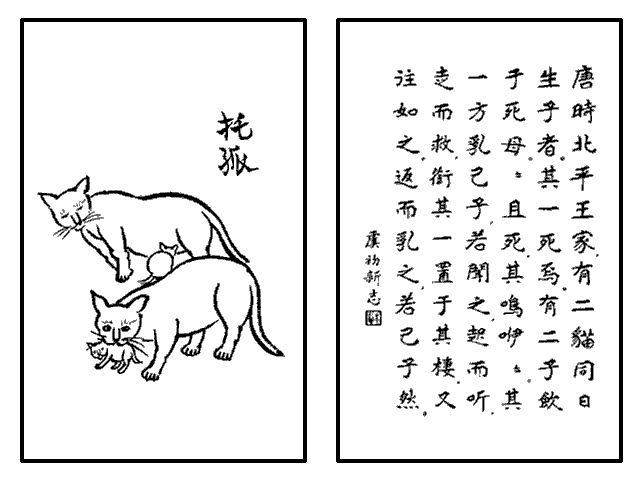 托孤
唐時北平王家,有二貓同日
生子者。其一死焉。有二子飲
于死母。〻且死,其鳴咿〻。其
一方乳己子,若聞之,起而听,
走而救,銜其一置于其棲,又
往如之。返而乳之,若己子然。
虞初新志